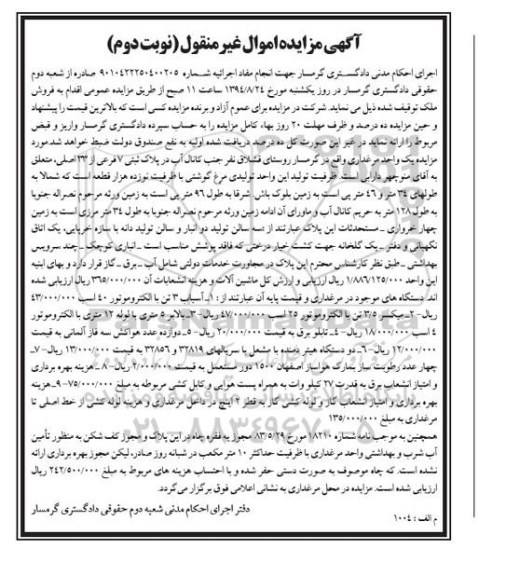 آگهی مزایده اموال غیر منقول (نوبت دوم)
اجرای احکام مدنی دادگستری گرمسار جهت انجام مفاد اجرائیه شماره ۹۰۱۰۴۲۲۲۵۰۴۰۰۲۰۵ صادره از شعبه دوم
حقوقی دادگستری گرمسار در روز یکشنبه مورخ ۱۳۹۴/۸/۲۴ ساعت ۱۱ صبح از طریق مزایده عمومی اقدام به فروش
ملک توقیف شده ذیل می نماید. شرکت در مزایده برای عموم آزاد و برنده مزایده کسی است که بالاترین قیمت را پیشنهاد
و حین مزایده ده درصد و ظرف مهلت ۲۰ روز بهاء کامل مزایده را به حساب سپرده دادگستری گرمسار واریز و قبض
مربوط را ارائه نماید در غیر این صورت کل ده درصد دریافت شده اولیه به نفع صندوق دولت ضبط خواهد شد.مورد
مزایده یک واحد مرغداری واقع در گرمسار روستای قشلاق نفر جنب کانال آب در پلاک ثبتی ۷ فرعی از ۳۳ اصلی، متعلق
به آقای منوچهر دارابی است. ظرفیت تولید این واحد تولیدی مرغ گوشتی با ظرفیت نوزده هزار قطعه است که شمالا به
طولهای ۳۴ متر و ۴۶ متر پی است به زمین بلوک باش شرقا به طول ۹۶ متر پی است به زمین ورثه مرحوم نصراله جنوبا
به طول ۱۲۸ متر به حریم کانال آب و ماورای آن ادامه زمین ورثه مرحوم نصراله جنوبا به طول ۳۴ متر مرزی است به زمین
چهار خرواری ـ مستحدثات این پلاک عبارتند از سه سالن تولید دو انبار و سالن تولید دانه با سازه خرپایی، یک اتاق
نگهبانی و دفتر ـ یک گلخانه جهت کشت خیار درختی که فاقد پوشش مناسب است ـ انباری کوچک ـ چند سرویس
بهداشتی ـ طبق نظر کارشناسی محترم این پلاک در مجاورت خدمات دولتی شامل آب ـ برق ـ گاز قرار دارد و بهای ابنیه
این واحد ۱/۸۸۶/۱۲۵/۰۰۰ ریال ارزیابی و ارزش کل ماشین آلات و هزینه انشعابات آن ۳۶۵/۰۰۰/۰۰۰ ریال ارزیابی شده
اند. دستگاه های موجود در مرغداری و قیمت پایه آن عبارتند از : ۱ـ آسیاب ۳ تن با الکتروموتور ۴۰ اسب ۴۳/۰۰۰/۰۰۰
ریال- ۲ـ میکسر ۳/۵ تن با الکتروموتور ۲۵ اسب ۴۷/۰۰۰/۰۰۰ ریال -۳ـ بالابر ۵ متری با لوله ۱۲ متری با الکتروموتور
۴ اسب ۱۸/۰۰۰/۰۰۰ ریال -۴ـ تابلو برق به قیمت ۲۰/۰۰۰/۰۰۰ ریال -۵ـ دوازده عدد هواکش سه فاز آلمانی به قیمت
۱۲/۰۰۰/۰۰۰ ریال -۶ـ دو دستگاه هیتر دمنده با مشعل با سریالهای ۳۲۸۱۹ و ۳۲۸۵۶ به قیمت ۱۳/۰۰۰/۰۰۰ ریال -۷ـ
چهار عدد رطوبت ساز بمارک هواساز اصفهان ۱۵۰۰ دور مستعمل به قیمت ۲/۰۰۰/۰۰۰ ریال -۸ـ هزینه بهره برداری
و امتیاز انشعاب برق به قدرت ۲۷ کیلو وات به همراه پست هوایی و کابل کشی مربوطه به مبلغ ۷۵/۰۰۰/۰۰۰ -۹ـ هزینه
بهره برداری و امتیاز انشعاب گاز و لوله کشی گاز به قطر ۲ اینچ در داخل مرغداری و هزینه لوله کشی از خط اصلی تا
مرغداری به مبلغ ۱۳۵/۰۰۰/۰۰۰
همچنین به موجب نامه شماره ۱۸۲۱۰ مورخ ۸۳/۵/۲۹ مجوز به فقره چاه در این پلاک و مجوز کف شکن به منظور تأمین
آب شرب و بهداشتی واحد مرغداری با ظرفیت حداکثر ۱۰ متر مکعب در شبانه روز صادر، لیکن مجوز بهره برداری ارائه
نشده است. که چاه موصوف به صورت دستی حفر شده و با احتساب هزینه های مربوط به مبلغ ۲۴۲/۵۰۰/۰۰۰ ریال
ارزیابی شده است. مزایده در محل مرغداری به نشانی اعلامی فوق برگزار می گردد.
دفتر اجرای احکام مدنی شعبه دوم حقوقی دادگستری گرمسار
م الف : ۱۰۰۴
۰۲۱-۸۸۳۴۹۶۷۰-۵